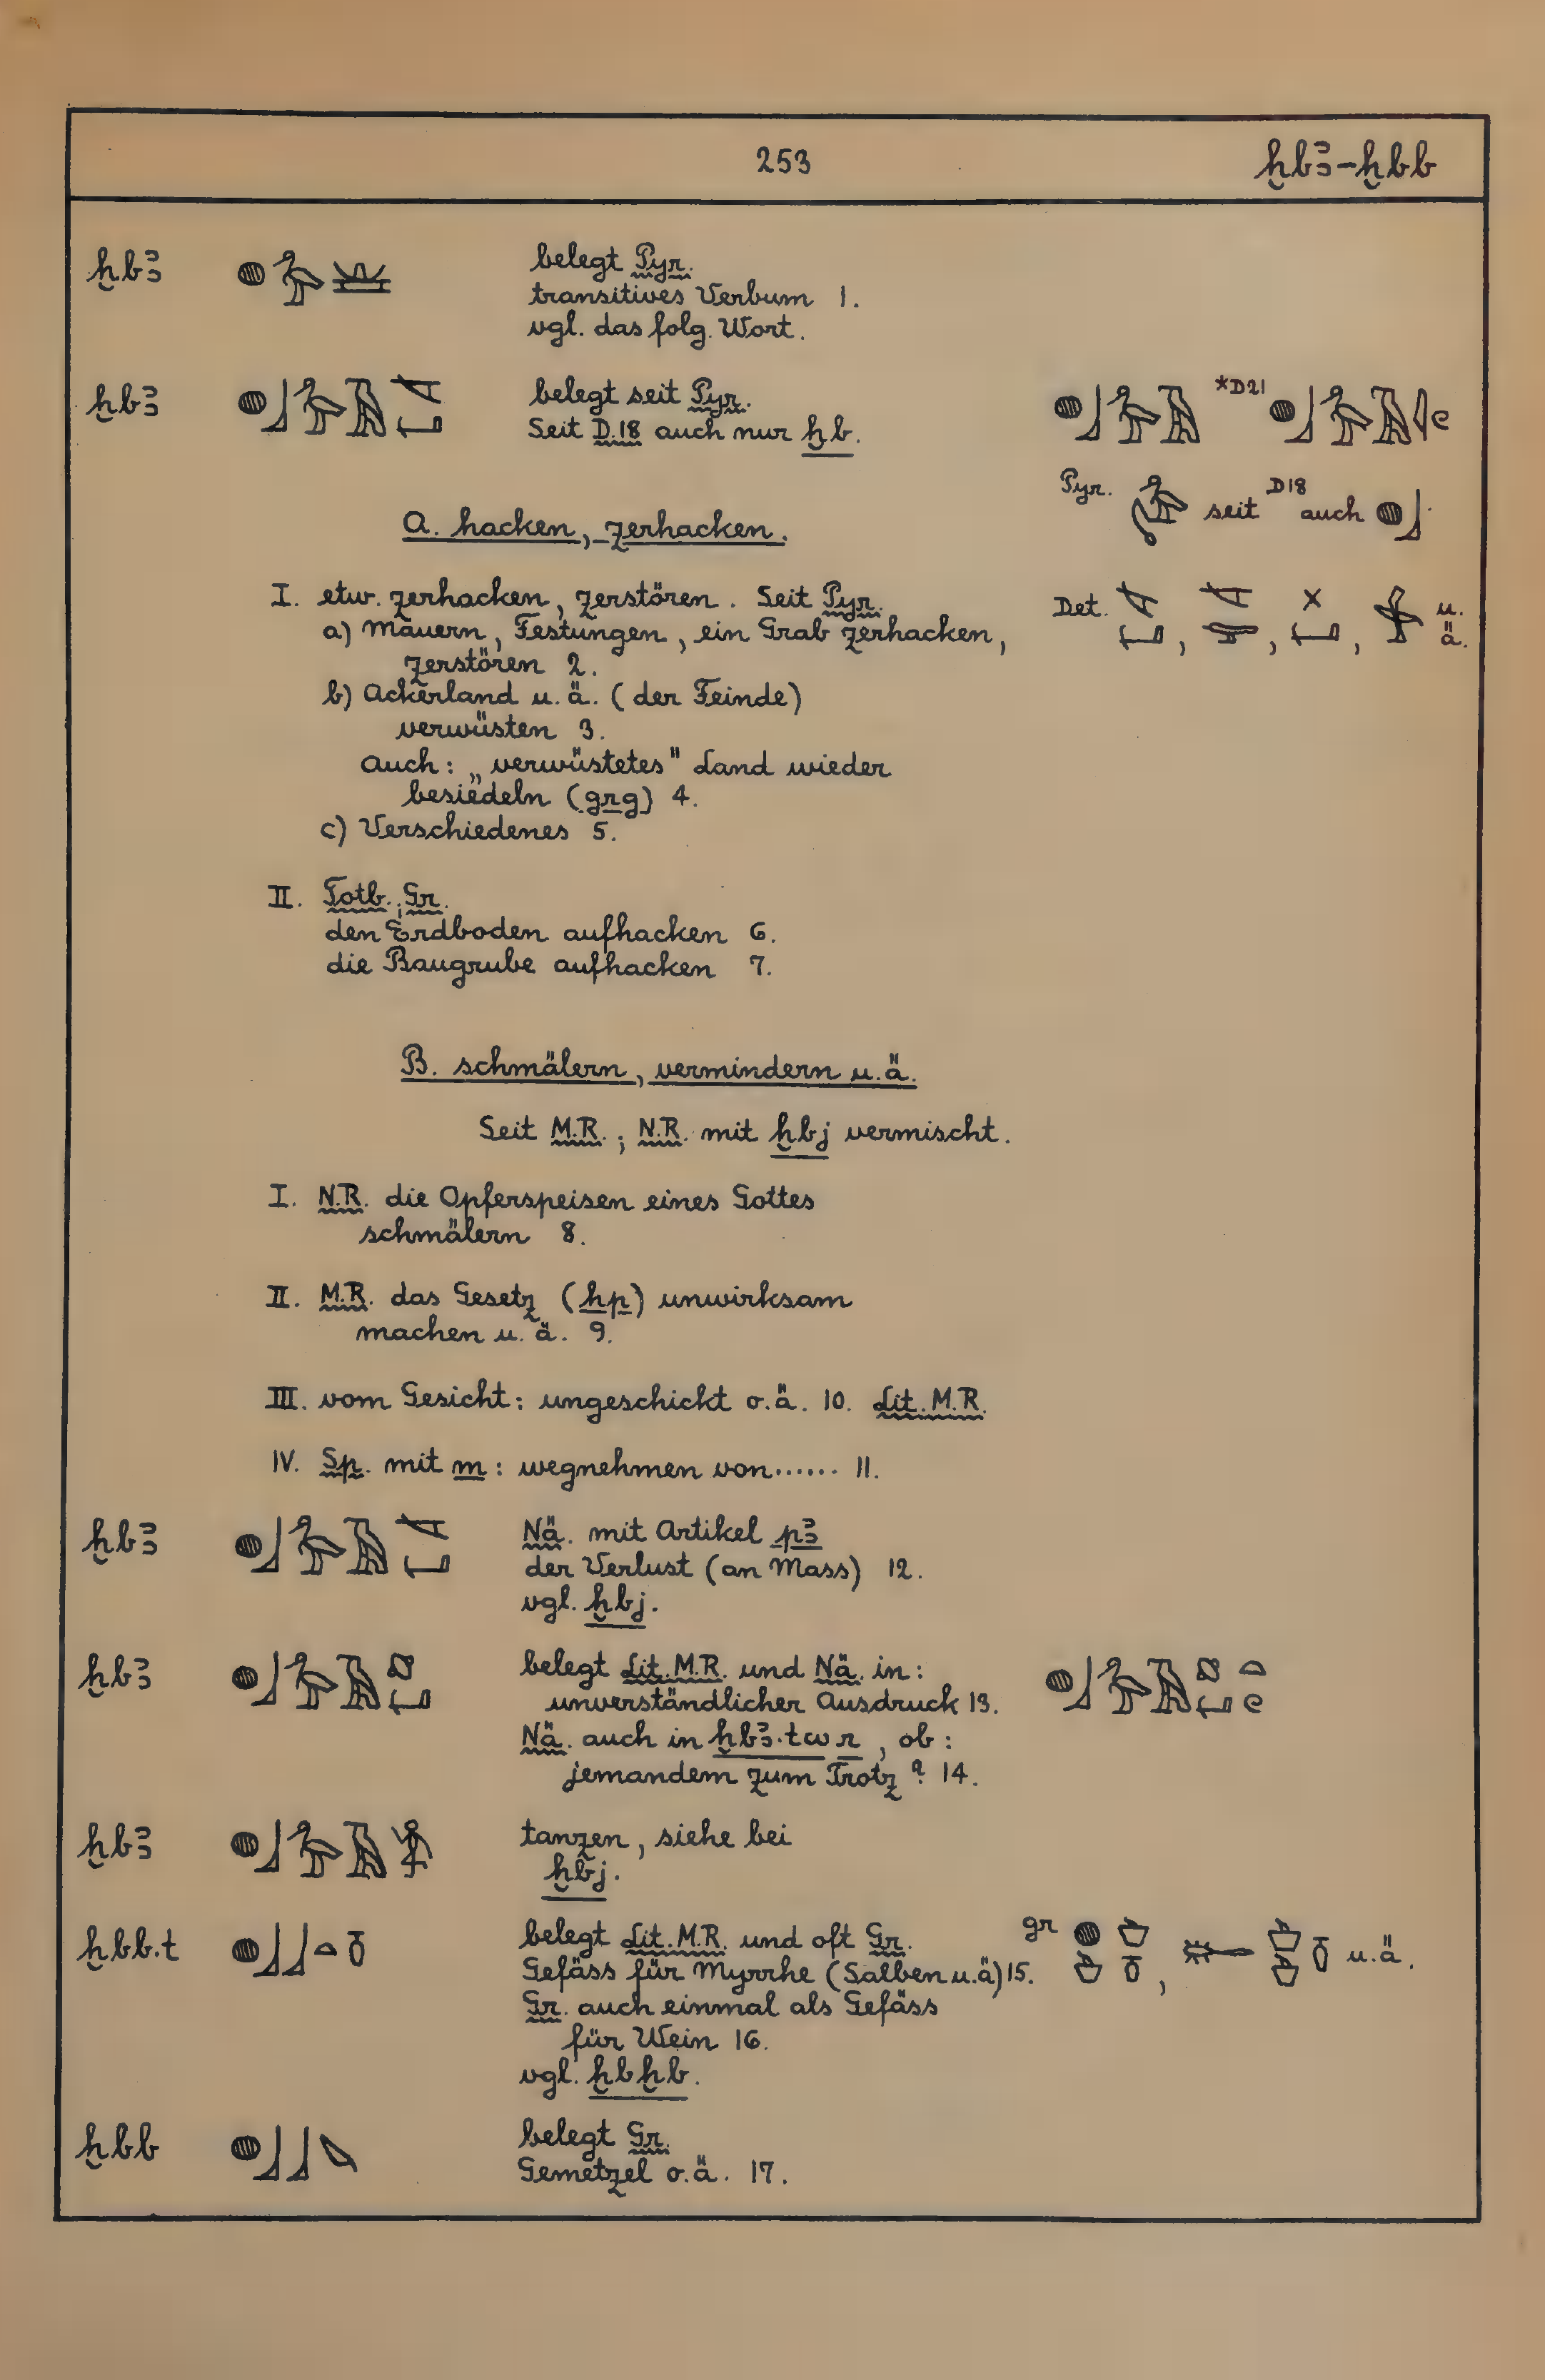 253 ḫbꜣ-ḫbb
ḫbꜣ belegt Pyr.
transitives Verbum 1.
vgl. das folg. Wort.
ḫbꜣ belegt seit Pyr. *D21
Seit D.18 auch nur ḫb.
Pyr. seit D18 auch
A. hacken, zerhacken.
I. etw. zerhacken, zerstören. Seit Pyr. Det. , , , u.ä.
a) Mauern, Festungen, ein Grab zerhacken,
zerstören 2.
b) Ackerland u.ä. (der Feinde)
verwüsten 3.
auch: „verwüstetes" Land wieder
besiedeln (grg) 4.
c) Verschiedenes 5.
II. Totb.; Gr.
den Erdboden aufhacken 6.
die Baugrube aufhacken 7.
B. schmälern, vermindern u.ä.
Seit M.R.; N.R. mit ḫbj vermischt.
I. N.R. die Opferspeisen eines Gottes
schmälern 8.
II. M.R. das Gesetz (hp) unwirksam
machen u.ä. 9.
III. vom Gesicht: ungeschickt o.ä. 10. Lit. M.R.
IV. Sp. mit m: wegnehmen von...... 11.
ḫbꜣ Nä. mit Artikel pꜣ
der Verlust (an Mass) 12.
vgl. ḫbj.
ḫbꜣ belegt Lit. M.R. und Nä. in:
unverständlicher Ausdruck 13.
Nä. auch in ḫbꜣ.tw r, ob:
jemandem zum Trotz? 14.
ḫbꜣ tanzen, siehe bei
ḫbj.
ḫbb.t belegt Lit. M.R. und oft Gr. gr , u.ä.
Gefäss für Myrrhe (Salben u.ä) 15.
Gr. auch einmal als Gefäss
für Wein 16.
vgl. ḫbḫb.
ḫbb belegt Gr.
Gemetzel o.ä. 17.